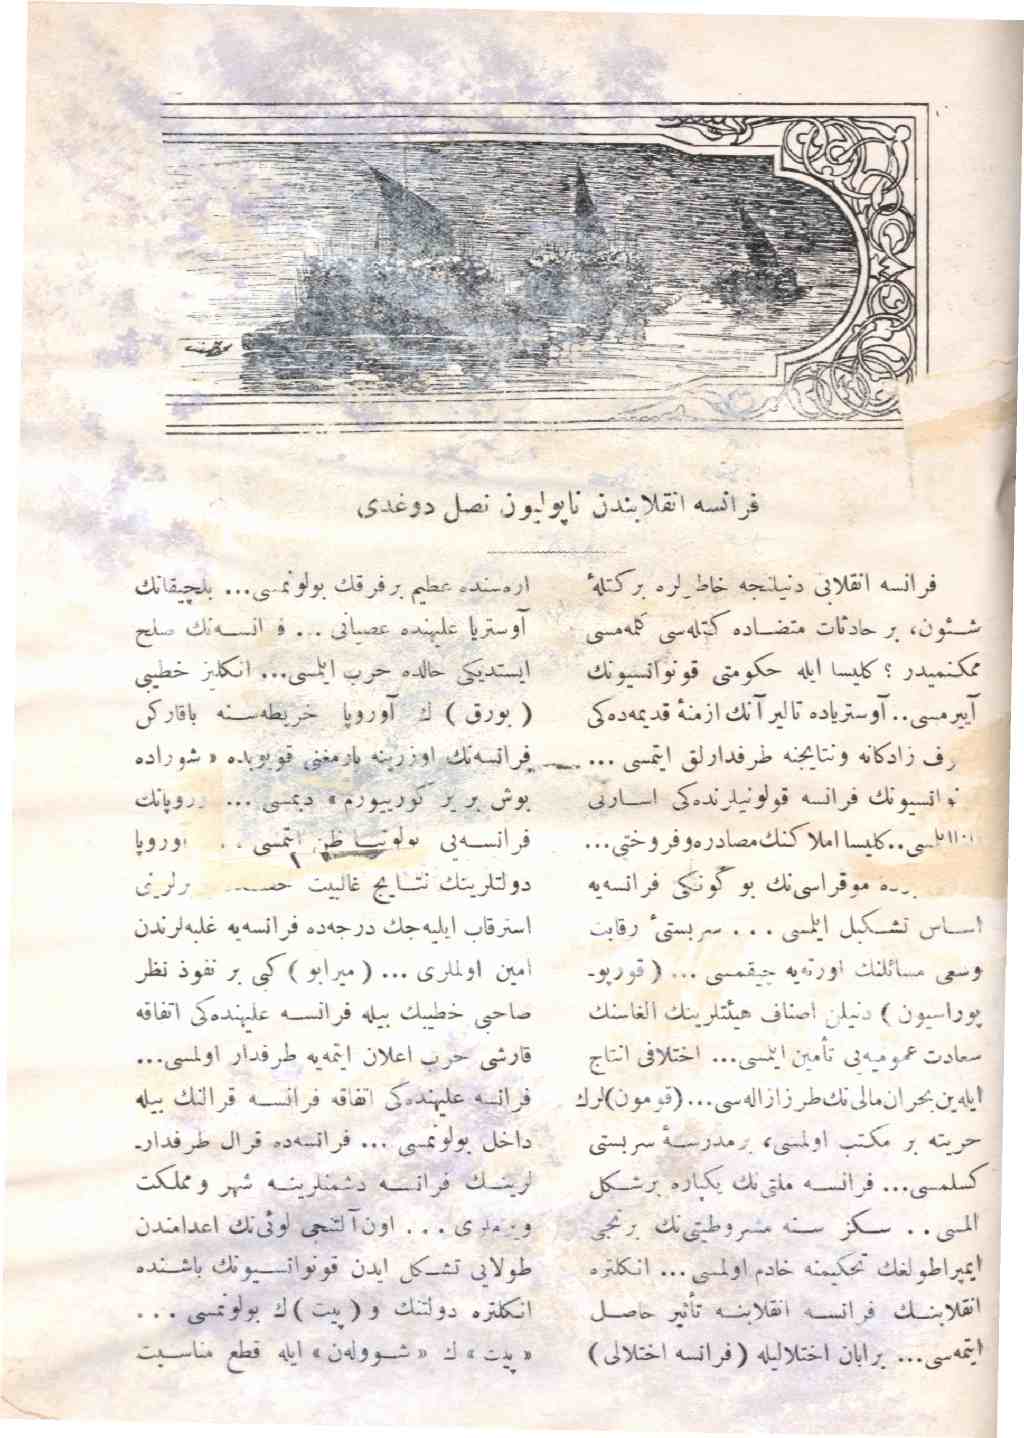 فرانسه انقلابندن ناپوليون نصل دوغدی
فرانسه انقلابی دنيلنجه خاطرلره بر كتلهٔ
شئون، بر حادثات متضاده كتله‌سی كلمه‌مسی
ممكنميدر؟ كليسا ايله حكومتی قونوانسيونك
آييرمسی.. آوسترياده تاليرآنك ازمنهٔ قديمه‌ده‌كی
زادكانه ونتايجنه طرفدارلق ايتمسی ...
فرانسه قولونيلرنده‌كی اسارتی
كليسا املاكنك مصادره‌وفروختی...
موقراسی‌نك بو كونكی فرانسه‌يه
اساس تشكيل ايلمسی ... سربستیٔ رقابت
وسعی مسائلنك اورته‌يه چيقمسی ... (قورپو-
پوراسيون) دنيلن اصناف هيئتلرينك الغاسنك
سعادت عموميه‌يی تأمين ايلمسی... اختلافی انتاج
ايله‌ين بحران مالی‌نك طرز ازاله‌سی... (قومون)لرك
حريته بر مكتب اولمسی، بر مدرسهٔ سربستی
كسلمسی... فرانسه ملتی‌نك يكپاره بر شكل
المسی.. سكز سنه مشروطيتی‌نك برنجی
ايمپراطولغك تحكيمنه خادم اولمسی... انكلتره
انقلابنك فرانسه انقلابنه تأثير حاصل
ايتمه‌سی... برابان اختلاليله (فرانسه اختلالی)
اره‌سنده عظيم بر فرقك بولونمسی... بلچيقانك
آوستريا عليهنده عصيانی ... فرانسه‌نك صلح
ايستديكی حالده حرب ايلمسی... انكليز خطيبی
(بورق) ك آوروپا خريطه‌سنه باقاركن
فرانسه‌نك اوزرينه پارمغنی قويوبده «شوراده
بوش بر ير كورييورم» ديمسی ...
فرانسه‌يی بولونيا ظن ايتمسی .. اوروپا
دولتلرينك نتايج غالبيت
استرقاب ايليه‌جك درجه‌ده فرانسه‌يه غلبه‌لرندن
امين اولملری ... (ميرابو) كبی بر نفوذ نظر
صاحبی خطيبك بيله فرانسه عليهنده‌كی اتفاقه
قارشی حرب اعلان ايتمه‌يه طرفدار اولمسی...
فرانسه عليهنده‌كی اتفاقه فرانسه قرالنك بيله
داخل بولونمسی ... فرانسه‌ده قرال طرفدار-
لرينك فرانسه دشمنلرينه شهر ومملكت
ويرمه‌لری ... اون آلتنجی لوئی‌نك اعدامندن
طولايی تشكل ايدن قونوانسيونك باشنده
انكلتره دولتنك و (پيت)ك بولونمسی ...
«پيت» ك «شووله‌ن» ايله قطع مناسبت